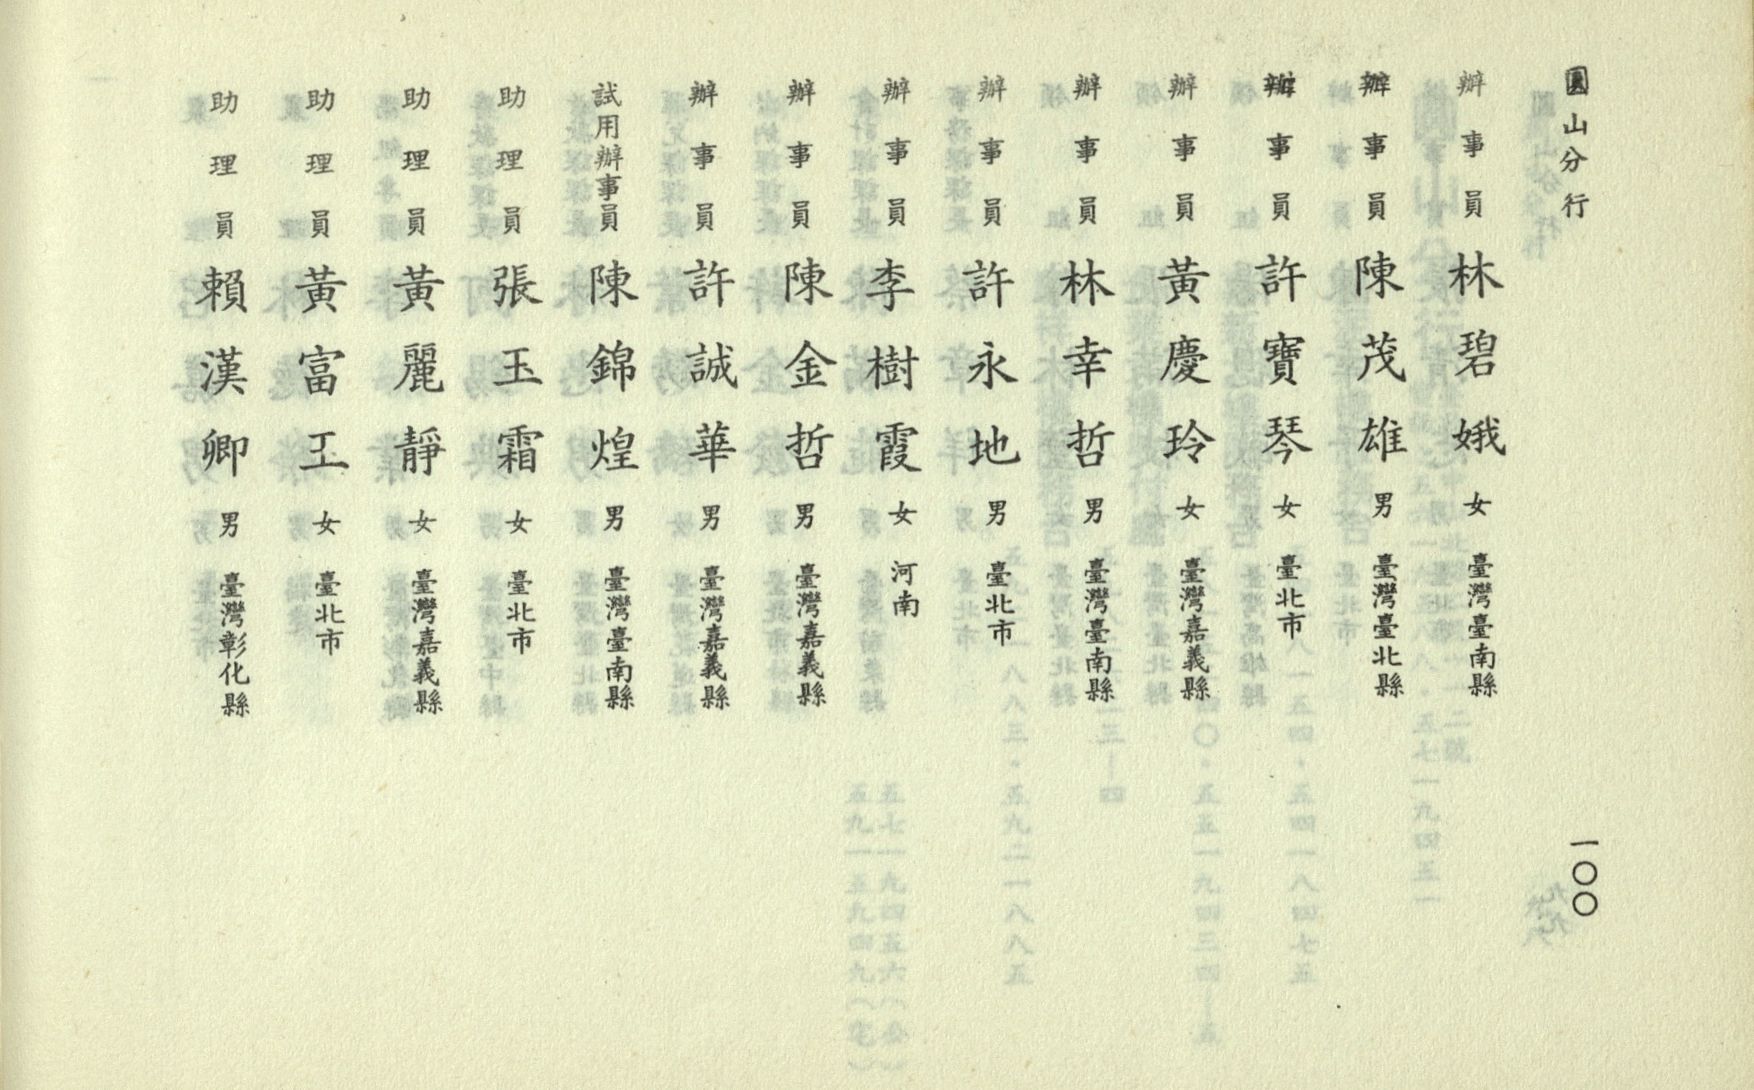 圓山分行
辦事員 林碧娥 女 臺灣臺南縣
辦事員 陳茂雄 男 臺灣臺北縣
辦事員 許寶琴 女 臺北市
辦事員 黃慶玲 女 臺灣嘉義縣
辦事員 林幸哲 男 臺灣臺南縣
辦事員 許永地 男 臺北市
辦事員 李樹霞 女 河南
辦事員 陳金哲 男 臺灣嘉義縣
辦事員 許誠華 男 臺灣嘉義縣
試用辦事員 陳錦煌 男 臺灣臺南縣
助理員 張玉霜 女 臺北市
助理員 黃麗靜 女 臺灣嘉義縣
助理員 黃富玉 女 臺北市
助理員 賴漢卿 男 臺灣彰化縣
一〇〇